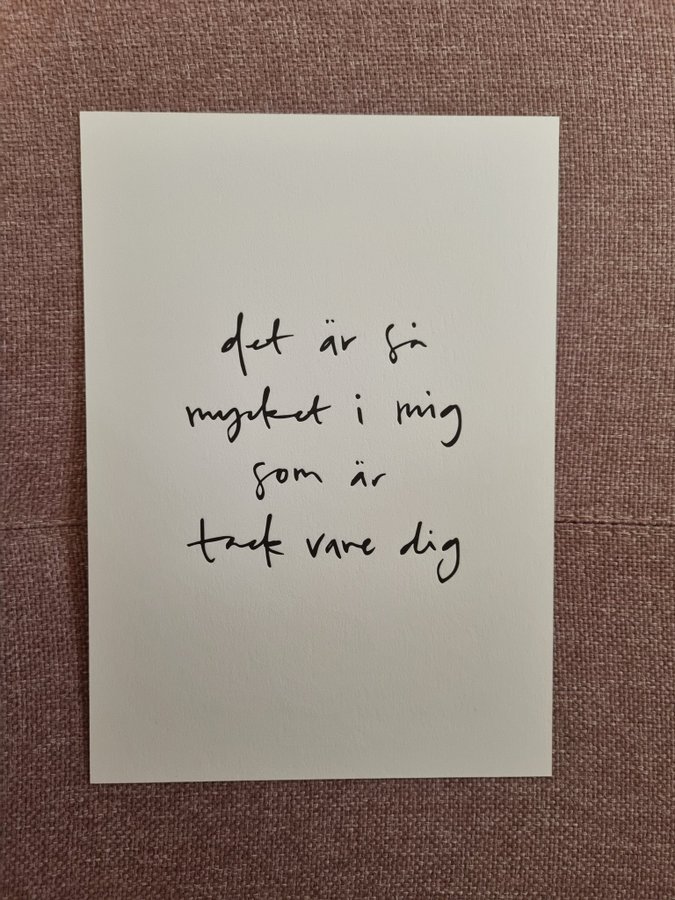 det är så
mycket i mig
som är
tack vare dig